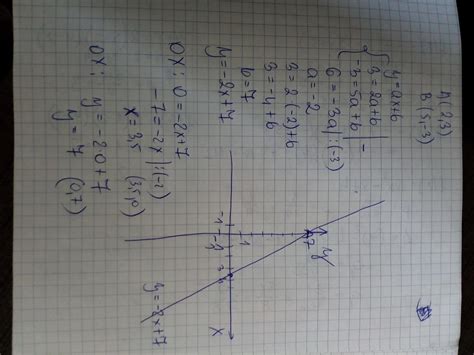 A(2,3)
B(5,-3)
y=ax+b
3=2a+b
-3=5a+b | -
6=-3a | :(-3)
a=-2
3=2·(-2)+b
3=-4+b
b=7
y=-2x+7
OX: 0=-2x+7
-7=-2x | :(-2)
x=3,5 (3,5,0)
OX: y=-2·0+7
y=7 (0,7)
y
7
1
-1
-1
1
3
4
x
y=-2x+7